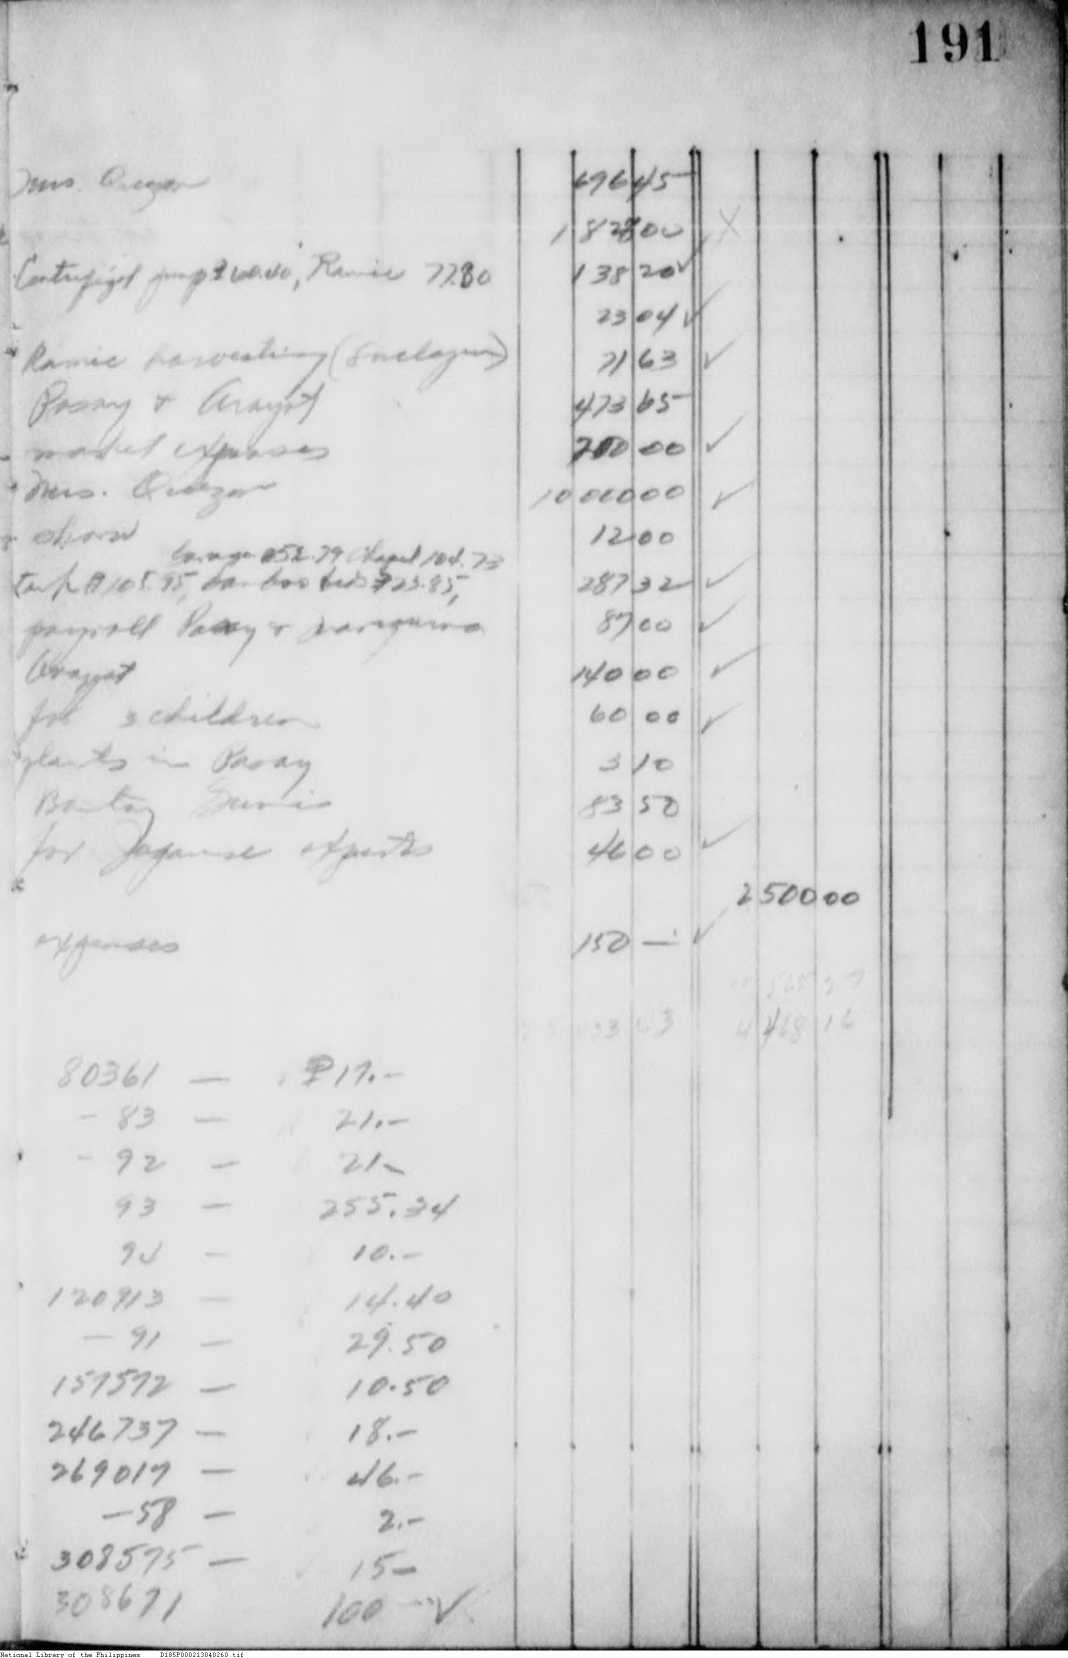 191
Mrs. Quezon 696 45
1 828 00 X
Centrifigal pump ₱ 60.40, Ramie 77.80 138 20 ✓
23 04 ✓
Ramie harvesting ( 71 63 ✓
Pasay & Arayat 473 65
market expenses 200 00 ✓
Mrs. Quezon 10 000 00 ✓
12 00
garage 52.79 Chapel 104.73
₱105.95, bamboo beds ₱23.85, 287 32 ✓
payroll Pasay & 87 00 ✓
Arayat 140 00 ✓
for 3 children 60 00 ✓
plants in Pasay 3 10
83 50
for Japanese experts 46 00 ✓
2 500 00
expenses 150 — ✓
4 468 16
80361 — ₱17.–
– 83 — 21.–
– 92 — 21–
93 — 255.34
94 — 10.–
120913 — 14.40
– 91 — 29.50
157572 — 10.50
246737 — 18.–
269017 — 46.–
– 58 — 2.–
308575 — 15–
308671 100 — ✓
National Library of the Philippines D185P000213040260.tif